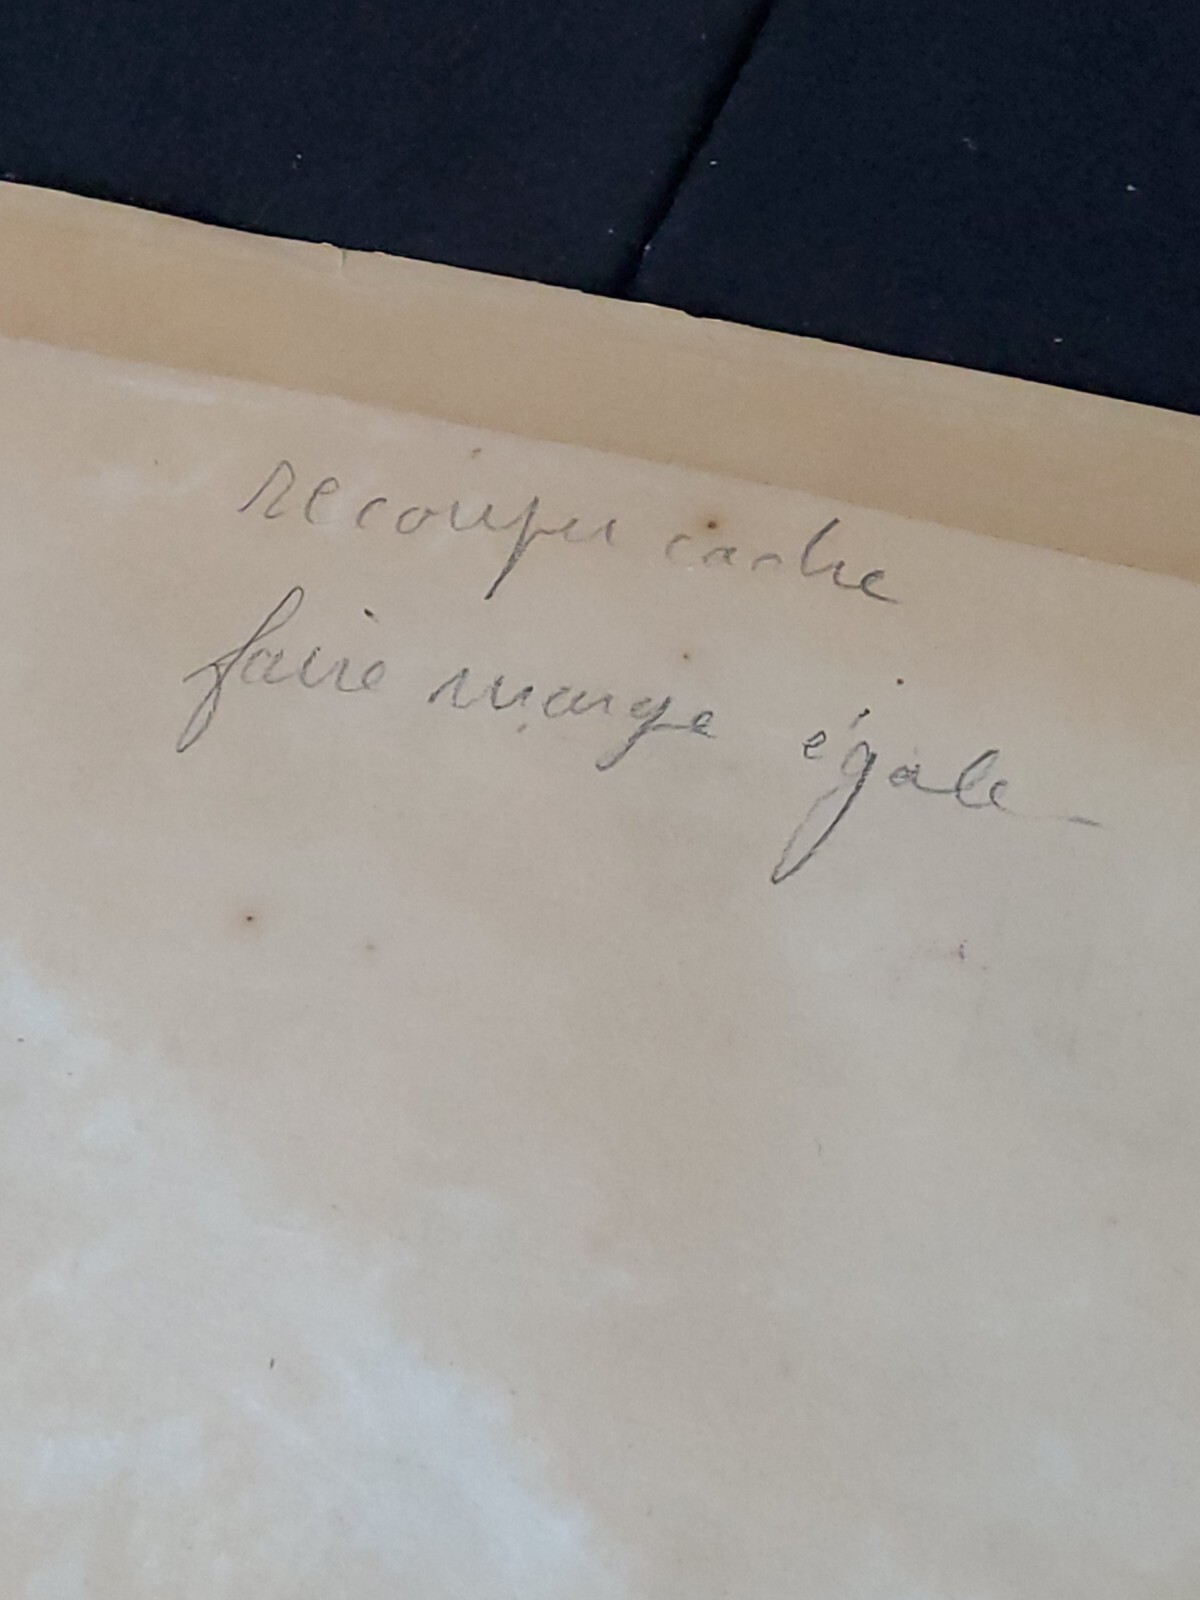 recouper cache
faire marge égale